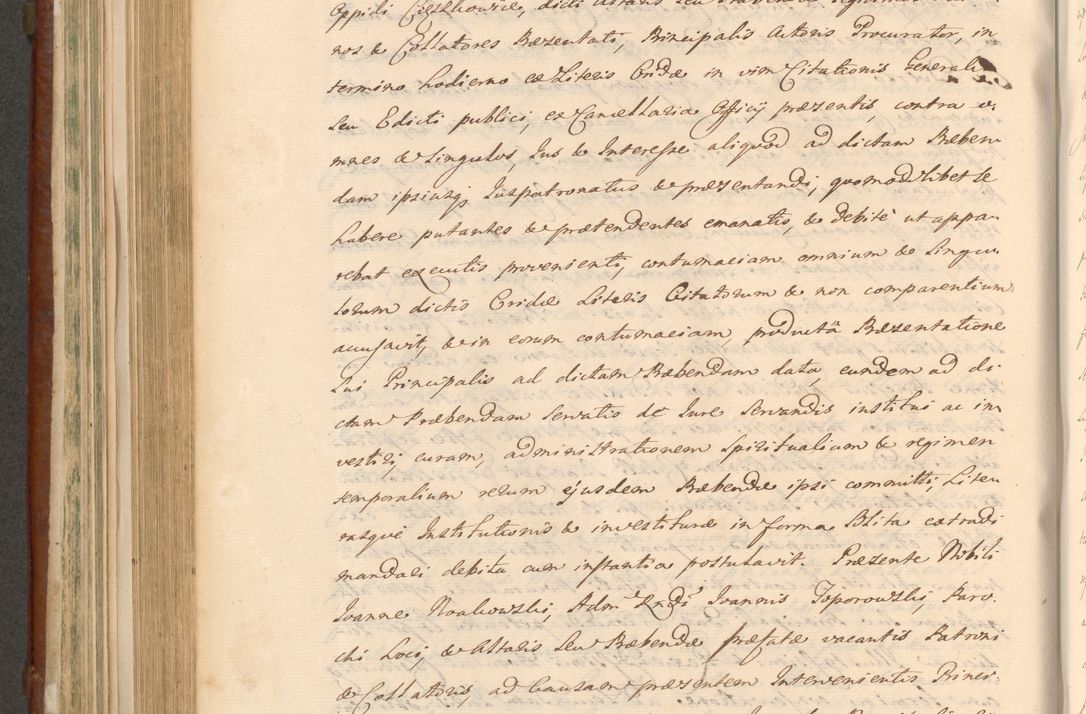 Oppidi dicti Altaris seu Præbendæ
nos & Collatores Præsentati, Principalis Actoris Procurator, in
termino hodierno ex Literis Cridæ in vim Citationis Generalis
seu Edicti publici, ex Cancellaria Officij præsentis, contra o-
mnes & singulos, Jus & Interesse aliquod ad dictam Præben-
dam ipsiusq; Juspatronatus & præsentandi, quomodolibet se
habere putantes & prætendentes emanatis, & debitè ut appa-
rebat executis provenienti, contumaciam omnium & singu-
lorum dictis Cridæ Literis Citatorum & non comparentium
accusavit, & in eorum contumaciam, productâ Præsentatione
sui Principalis ad dictam Præbendam data, eundem ad di-
ctam Præbendam servatis de Jure servandis institui ac in-
vestiri, curam, administrationem spiritualium & regimen
temporalium rerum ejusdem Præbendæ ipsi committi, Lite-
rasque Institutionis & investituræ in forma solita extradi
mandari debita cum instantia postulavit. Præsente Nobili
Joanne Noakowski, Adm. Rndi Joannis Toporowski, Paro-
chi Loci, & Altaris seu Præbendæ præfatæ vacantis Patroni
& Collatoris, ad Causam præsentem Intervenientis Princi-